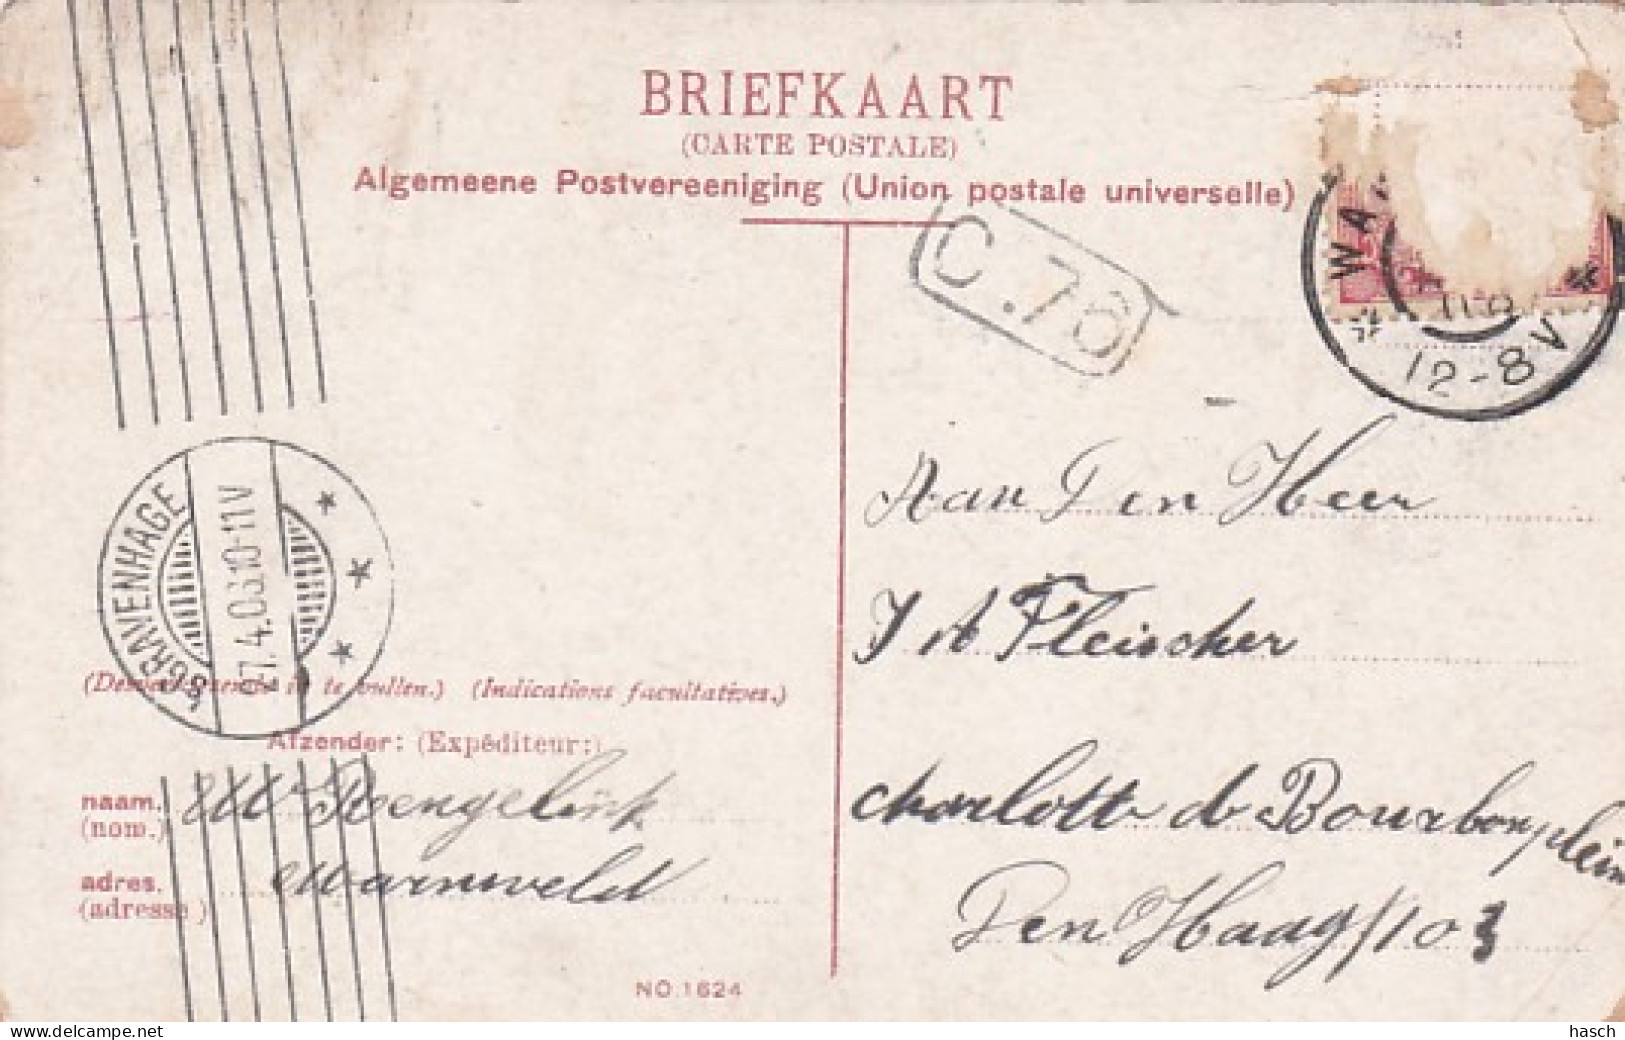 BRIEFKAART
(CARTE POSTALE)
Algemeene Postvereeniging (Union postale universelle)
C.78
WA
12-8V
Aan Den Heer
J A Fleischer
Charlotte de Bourbonplein
Den Haag / 103
'S GRAVENHAGE
27.4.08 10-11V
in te vullen.) (Indications facultatives.)
Afzender: (Expéditeur:)
naam.
(nom.)
adres. Warnsveld
(adresse)
NO.1624
www.delcampe.net
hasch